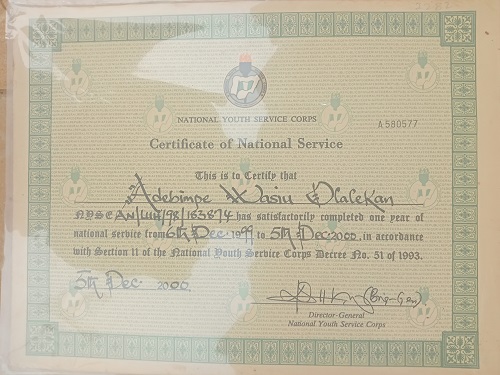 NATIONAL YOUTH SERVICE CORPS
A 580577
Certificate of National Service
This is to Certify that
Adebimpe Wasiu Olalekan
has satisfactorily completed one year of
national service from 6th Dec. 1999 to 5th Dec. 2000, in accordance
with Section 11 of the National Youth Service Corps Decree No. 51 of 1993.
5th Dec. 2000
Director-General
National Youth Service Corps